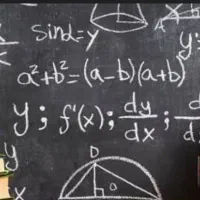 A
sind=y
y:
a²+b²=(a-b)(a+b)
y; f'(x); dy/dx; d/d
y
D
x
a